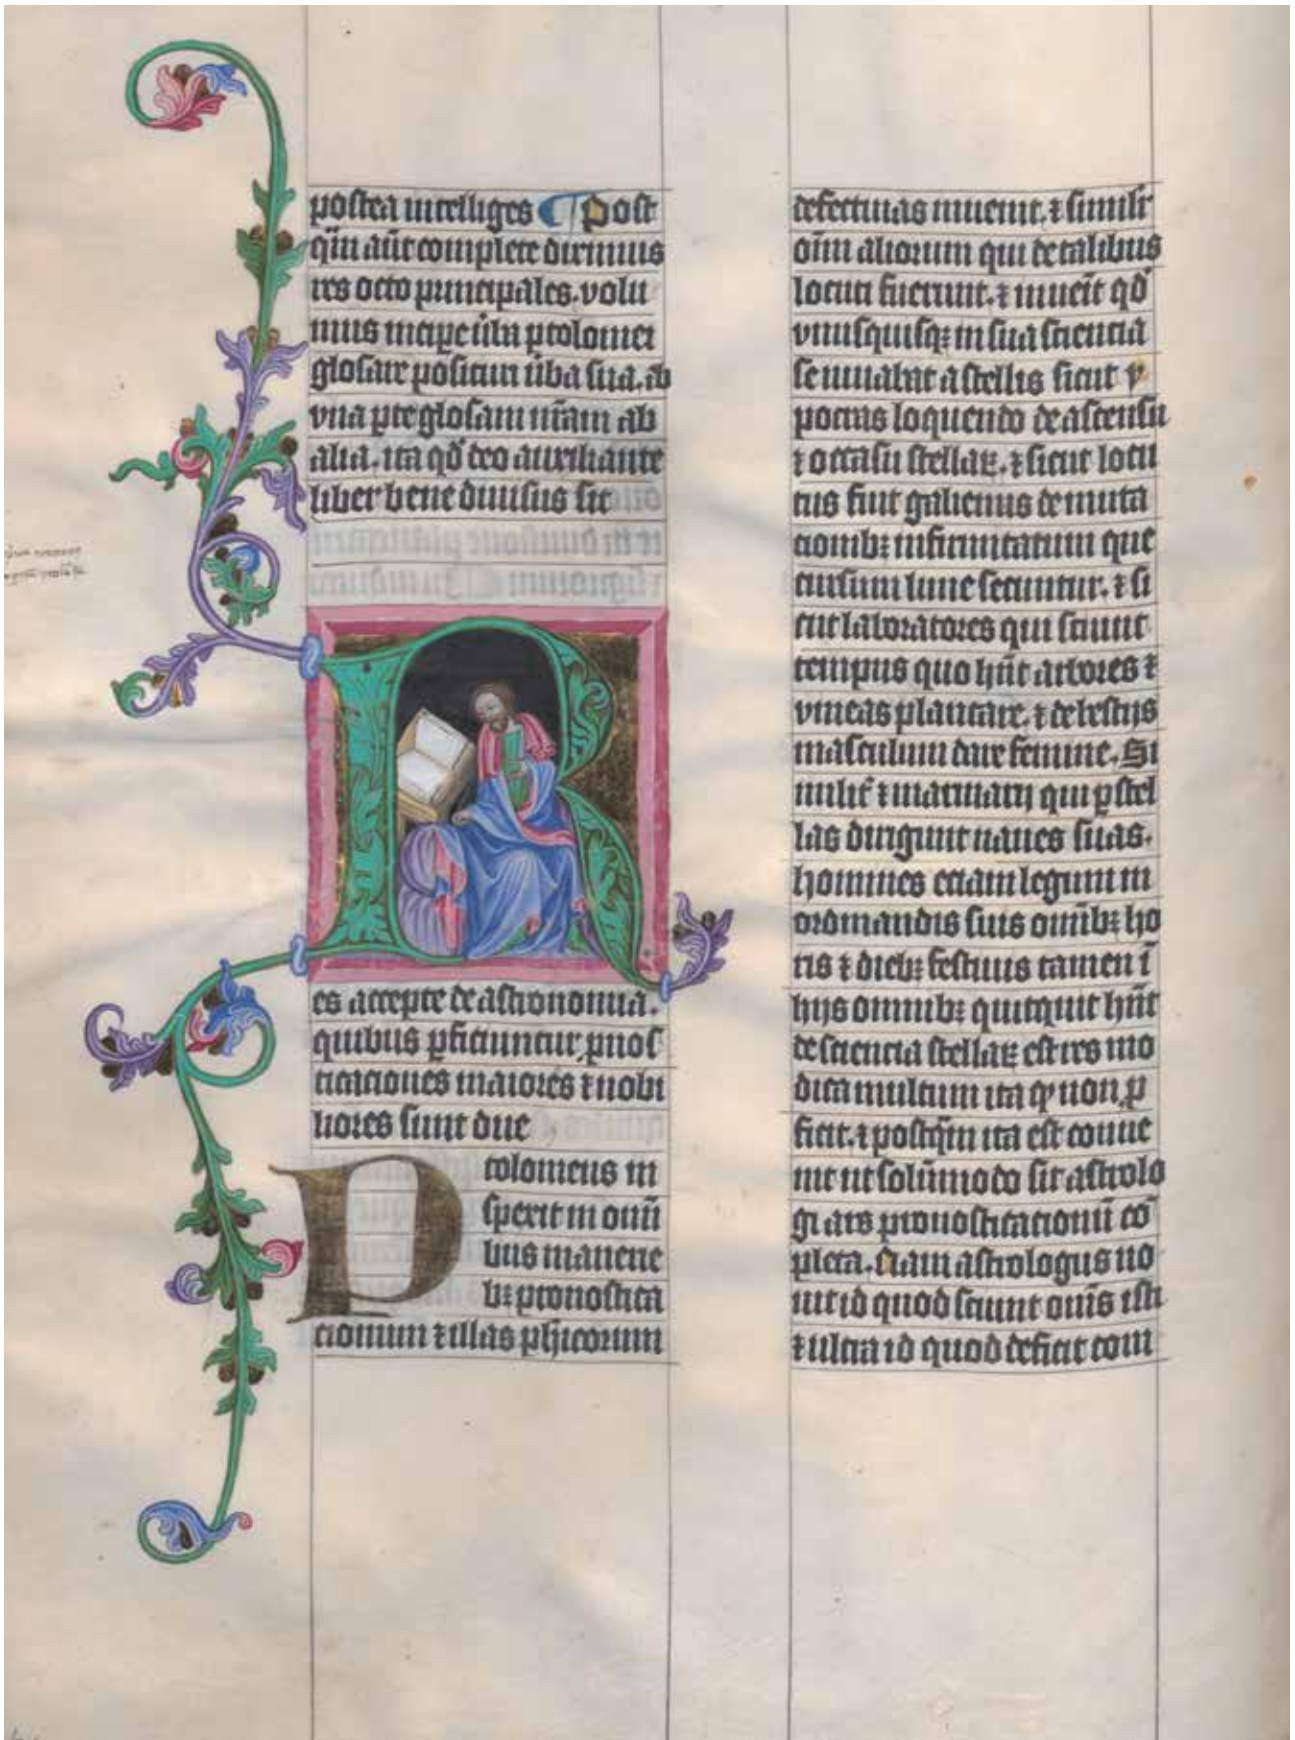 postea intelliges ¶ Post
qm̄ aūt complete diximus
res octo principales. volu
mus incipe ūba ptolomei
glosare positum ūba sua. ab
vna pte glosam nr̄am ab
alia. ita qd̄ deo auxiliante
liber bene diuisus sit
R
es accepte de astronomia.
quibus ꝑficiuntur, pnos
ticaciones maiores ⁊ nobi
liores sunt due
Ptolomeus in
sperit in omī
bus manene
bꝫ pronostica
cionum ⁊ illas ph̄icorum
defectiuas inuenit. ⁊ simil̄r
oīm aliorum qui de talibus
locuti fuerunt. ⁊ inueīt qd̄
vnusquisqꝫ in sua sciencia
se iuuabat a stellis sicut y
pocras loquendo de ascensu
⁊ occasu stellaꝝ. ⁊ sicut locu
tus fuit galienus de muta
cionibꝫ infirmitatum que
cursum lune secuntur. ⁊ si
cut laboratores qui sciunt
tempus quo hn̄t arbores ⁊
vineas plantare. ⁊ de bestijs
masculum dare femine. Si
milit̄ ⁊ marinarij qui ꝑ stel
las dirigunt naues suas.
homines eciam legum in
ordinandis suis om̄ibꝫ ho
ris ⁊ diebꝫ festiuis tamen ī
hijs omnibꝫ quicquit hn̄t
de sciencia stellaꝝ est res mo
dica multum ita qꝫ non ꝓ
ficit. ⁊ postqm̄ ita est conue
nit ut solūmodo sit astrolo
gi ars pronosticacionū cō
pleta. Nam astrologus no
uit id quod sciunt om̄s isti
⁊ ultra id quod deficit com